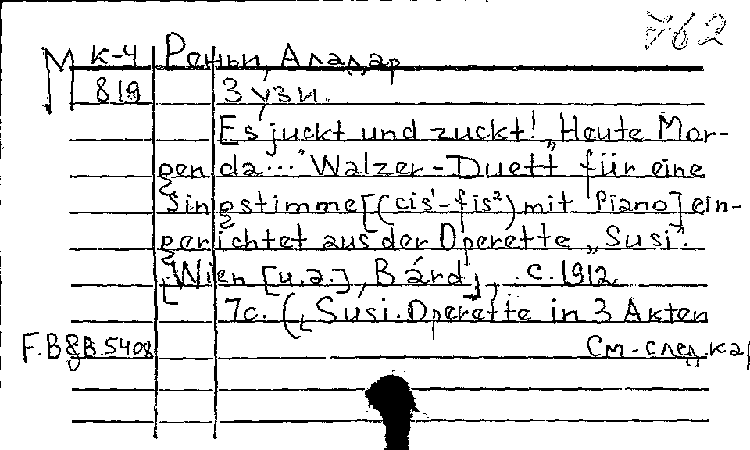 762
М к-4 Реньи, Аладар
819 Зузи.
Es juckt und zuckt! „Heute Mor-
gen da..." Walzer-Duett für eine
Singstimme [(cis'-fis²) mit Piano] ein-
gerichtet aus der Operette „Susi".
Wien [u.a.], Bárd, c. 1912.
7c. („Susi. Operette in 3 Akten
F.B&B.5408 См. след. кар